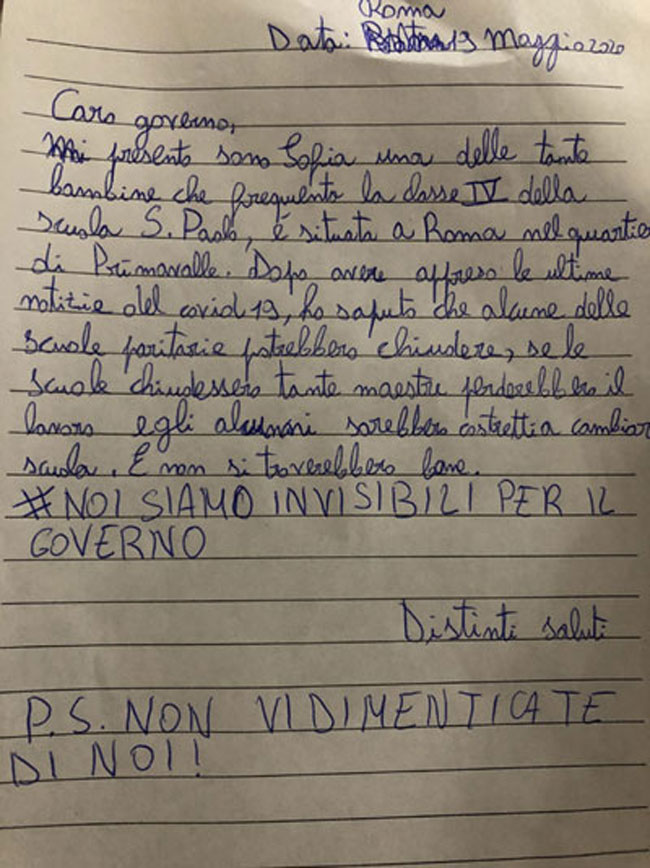 Roma
Data: 13 Maggio 2020
Caro governo,
Mi presento sono Sofia una delle tante
bambine che frequenta la classe IV della
scuola S. Paolo, é situata a Roma nel quartie
di Primavalle. Dopo avere appreso le ultime
notizie del covid 19, ho saputo che alcune delle
scuole paritarie potrebbero chiudere, se le
scuole chiudessero tante maestre perderebbero il
lavoro e gli alunni sarebbero costretti a cambiar
scuola. E non si troverebbero bene.
#NOI SIAMO INVISIBILI PER IL
GOVERNO
Distinti saluti
P.S. NON VI DIMENTICATE
DI NOI!